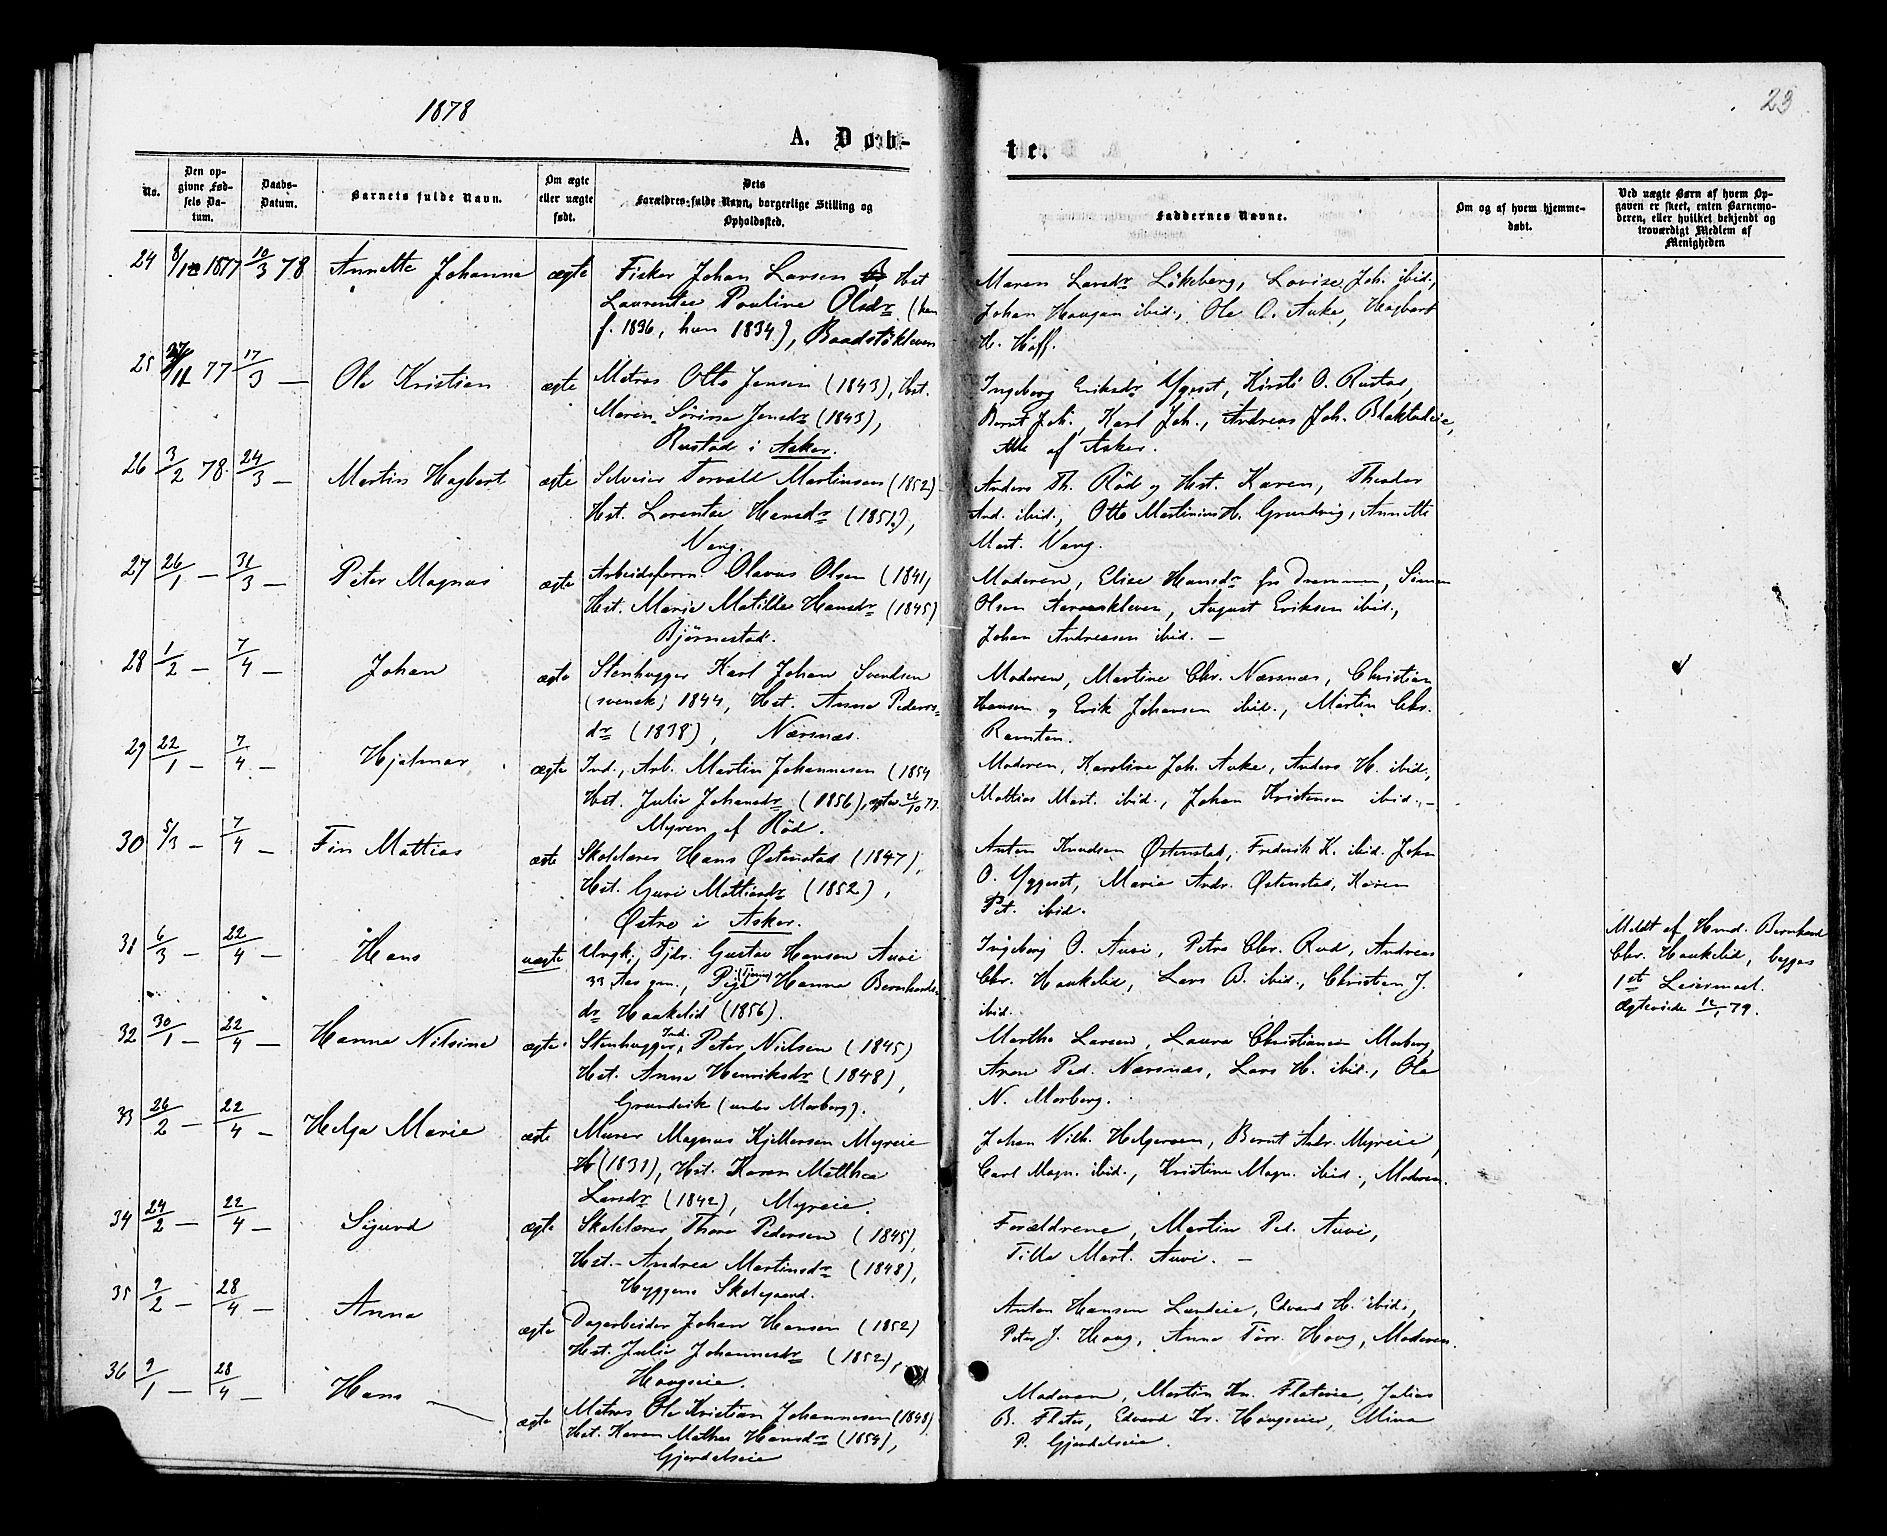 1878
23
A. Døb-
te.
No.
Den op-
givne Fød-
sels Da-
tum.
Daabs-
Datum.
Barnets fulde Navn.
Om ægte
eller uægte
født.
Dets
Forældres fulde Navn, borgerlige Stilling og
Opholdssted.
Faddernes Navne.
Om og af hvem hjemme-
døbt.
Ved uægte Børn af hvem Op-
gaven er skeet, enten Barnemo-
deren, eller hvilket bekjendt og
troværdigt Medlem af
Menigheden
24 8/12 1877 10/3 78 Annette Johanne ægte Fisker Johan Larsen Hst
Laurentse Pauline Olsdr (han
f. 1836, hun 1834),
Maren Larsdr Lökeberg, Lovise Joh. ibid.,
Johan Haugan ibid., Ole O. Auke, Hagbart
H. Hoff.
25 /11 77 17/3 — Ole Kristian ægte Matros Otto Jensen (1843), Hst.
Maren Sörine Jensdr (1843),
Rustad i Asker.
Ingeborg Eriksdr Yggeset, Kirsti O. Rustad,
Bernt Joh. Karl Joh., Andreas Joh.
Alle af Asker.
26 3/2 78 24/3 — Martin Hagbart ægte Selveier Torvald Martinsen (1852)
Hst. Lorentse Hansdr (1851),
Vang.
Anders Th. Röd og Hst. Karen, Theodor
And. ibid., Otto Martinius H. Grundvig, Annette
Mart. Vang.
27 26/1 — 31/3 — Peter Magnus ægte Arbeidsform. Olavus Olsen (1841,
Hst. Marie Matilde Hansdr (1845)
Bjørnestad.
Moderen, Elise Hansdr fra Drammen, Simen
Olsen Aaraaskleven, August Eriksen ibid.,
Johan Andreasen ibid. —
28 1/2 — 7/4 — Johan ægte Stenhugger Karl Johan Svendsen
(svensk) 1844, Hst. Anna Peders-
dr (1838), Nærsnæs.
Moderen, Martine Chr. Nærsnæs, Christian
Hansen og Erik Johansen ibid., Martin Chr.
Ramton.
29 22/1 — 7/4 — Hjalmar ægte Ind., Arb. Martin Johannesen (1854
Hst. Julie Johansdr (1856), 26/10 77.
Myren af Röd.
Moderen, Karoline Joh. Auke, Anders H. ibid.,
Mathias Mart. ibid., Johan Kristensen ibid. —
30 5/3 — 7/4 — Fin Mattias ægte Skolelærer Hans Østenstad (1847),
Hst. Guri Mattiasdr (1852),
Østre i Asker.
Anton Knudsen Østenstad, Frederik K. ibid. John
O. Yggeset, Maria Andr. Østenstad, Karen
Pet. ibid.
31 6/3 — 22/4 — Hans uægte Ungk., Gustav Hansen Auvi
33 Aar gm., Pige (Tjenes) Hanna Bernhards-
dr Haakelid (1856).
Ingeborg O. Auvi, Petra Chr. Rud, Andreas
Chr. Haakelid, Lars B. ibid., Christian J.
ibid.
Meldt af Hmd. Bernhard
Chr. Haakelid, begges
1st Leiermaal.
Ægteviede 12/1 79.
32 30/1 — 22/4 — Hanna Nilsine ægte Stenhugger, Ind. Peter Nielsen (1845)
Hst. Anna Henriksdr (1848),
Grundvik (under Morberg).
Marthe Larsen, Laura Christiansen Morberg,
Aren Ped. Nærsnæs, Lars H. ibid., Ole
N. Morberg.
33 26/2 — 22/4 — Helga Marie ægte Murer Magnus Kjellersen Myreie
(1831), Hst. Karen Mathea
Larsdr (1842), Myreie.
Johan Vilh. Helgersen, Bernt Andr. Myreie,
Carl Magn. ibid., Kristine Magn. ibid., Moderen.
34 24/2 — 22/4 — Sigurd ægte Skolelærer Thore Pedersen (1845),
Hst. Andrea Martinsdr (1848),
Hyggens Skolegaard.
Forældrene, Martin Ped. Auvi,
Tilla Mart. Auvi. —
35 9/2 — 28/4 — Anna ægte Dagarbeider Johan Hansen (1852)
Hst. Julie Johannesdr (1852),
Haugseie.
Anton Hansen Lundeie, Edvard H. ibid.,
Peter J. Haug, Anna Torr. Haug, Moderen.
36 9/1 — 28/4 — Hans ægte Matros Ole Kristian Johannesen (1848)
Hst. Karen Mathea Hansdr (1854),
Gjerdalseie
Moderen, Martin Kr. Flateie, Julius
B. Flateie, Edvard Kr. Haugseie, Mina
P. Gjerdalseie.